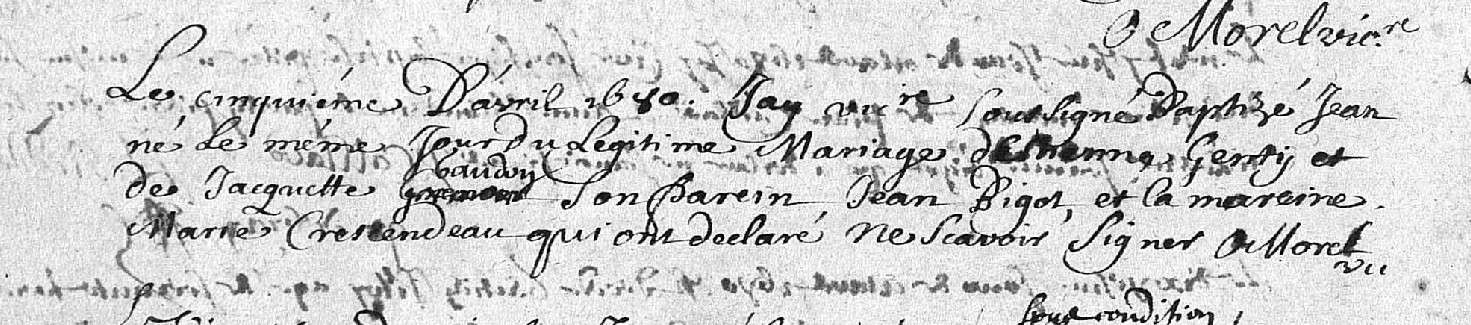 O Morel vic.re
Le cinquiéme D'avril 1680. Jay vic.re soussigné Baptizé Jean
né le méme Jour du Legitime Mariage d'Estienne Genty et
baudry
de Jacquette son parein Jean Bigot, et la mareine.
Marie Crestendeau qui ont declaré ne scavoir signer O Morel
vic
sous condition,